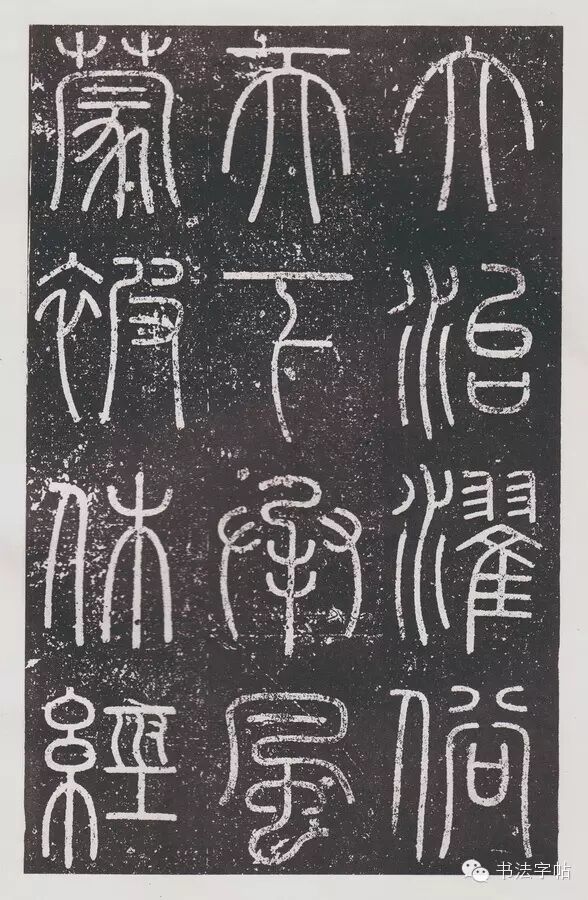 大治濯俗
天下承風
蒙被休經
书法字帖